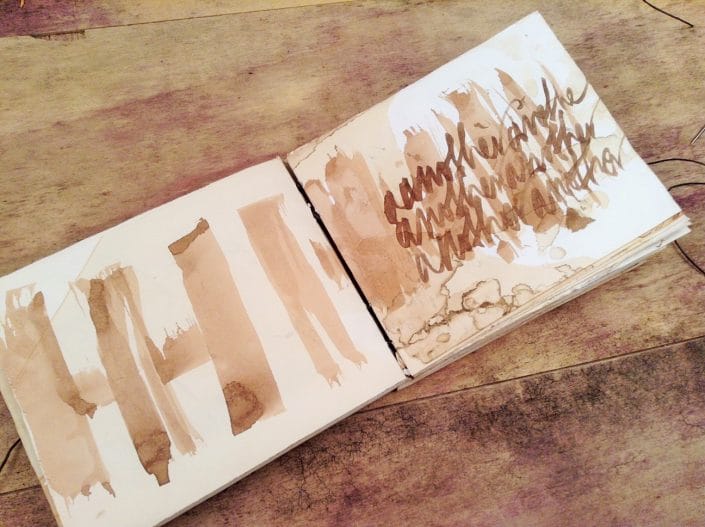 another anothe
another another
another another